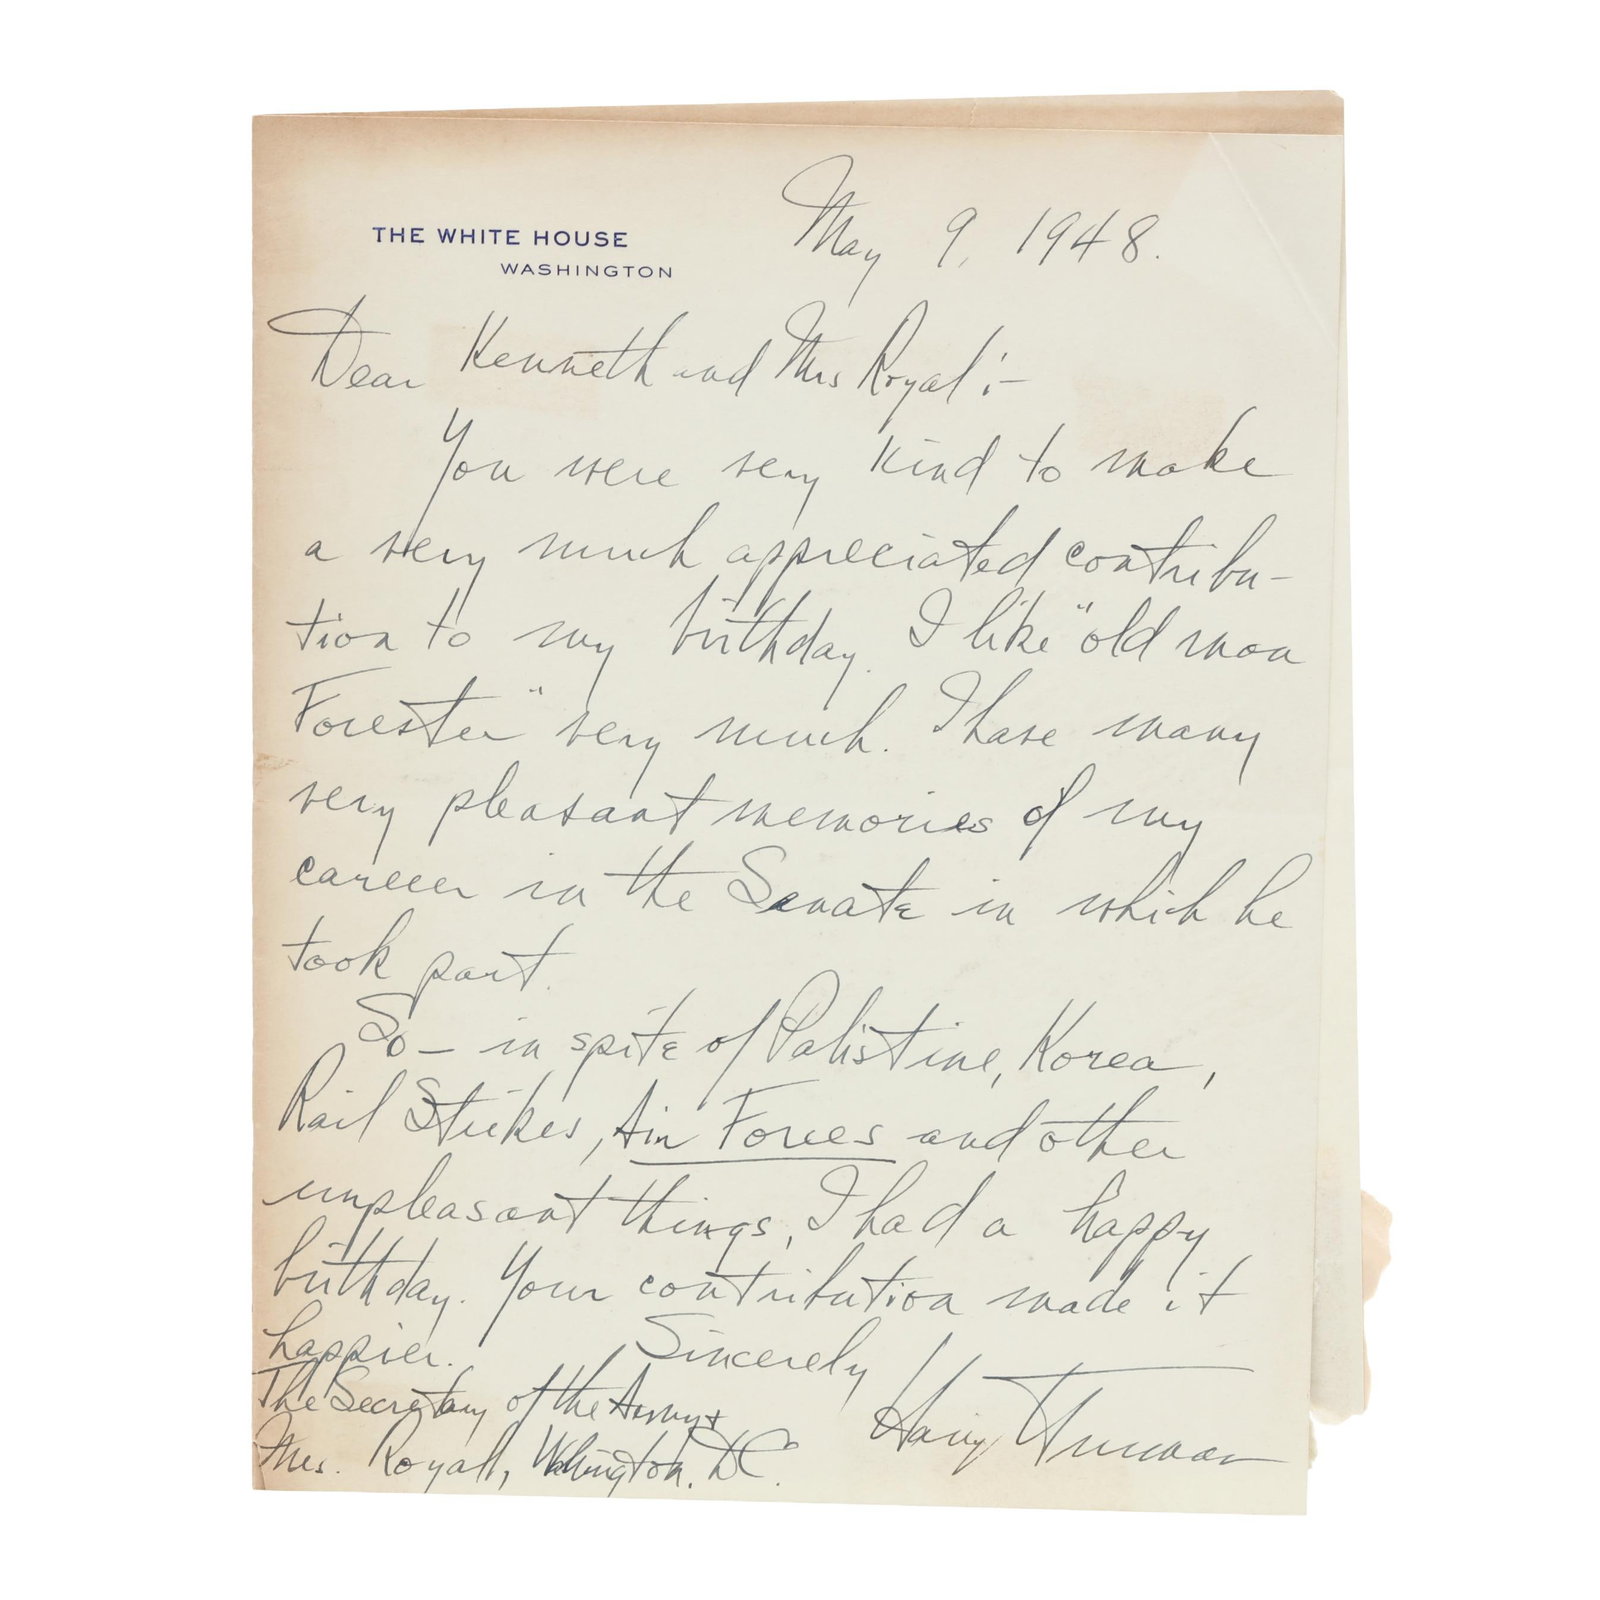 THE WHITE HOUSE
WASHINGTON
May 9, 1948.
Dear Kenneth and Mrs Royal :-
You were very kind to make
a very much appreciated contribu-
tion to my birthday. I like "old man
Forester" very much. I have many
very pleasant memories of my
career in the Senate in which he
took part.
So - in spite of Palistine, Korea,
Rail Strikes, Air Forces and other
unpleasant things, I had a happy
birthday. Your contribution made it
happier.
Sincerely
Harry Truman
The Secretary of the Army +
Mrs. Royall, Washington, DC.